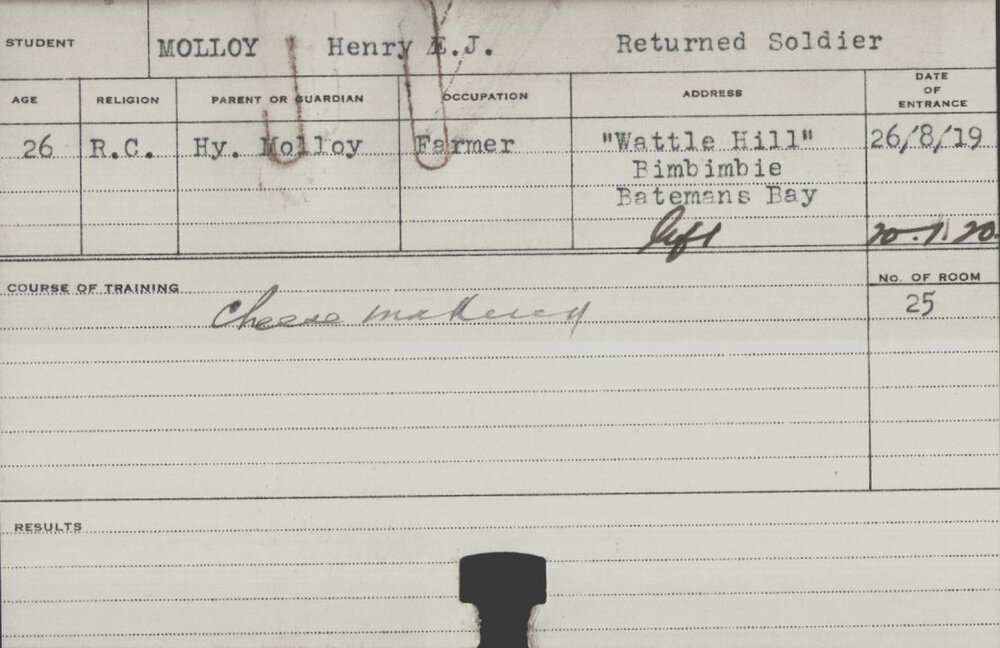 STUDENT MOLLOY Henry E.J. Returned Soldier
AGE RELIGION PARENT OR GUARDIAN OCCUPATION ADDRESS DATE OF ENTRANCE
26 R.C. Hy. Molloy Farmer "Wattle Hill" 26/8/19
Bimbimbie
Batemans Bay
left 20.1.20.
COURSE OF TRAINING NO. OF ROOM
Cheese making 25
RESULTS